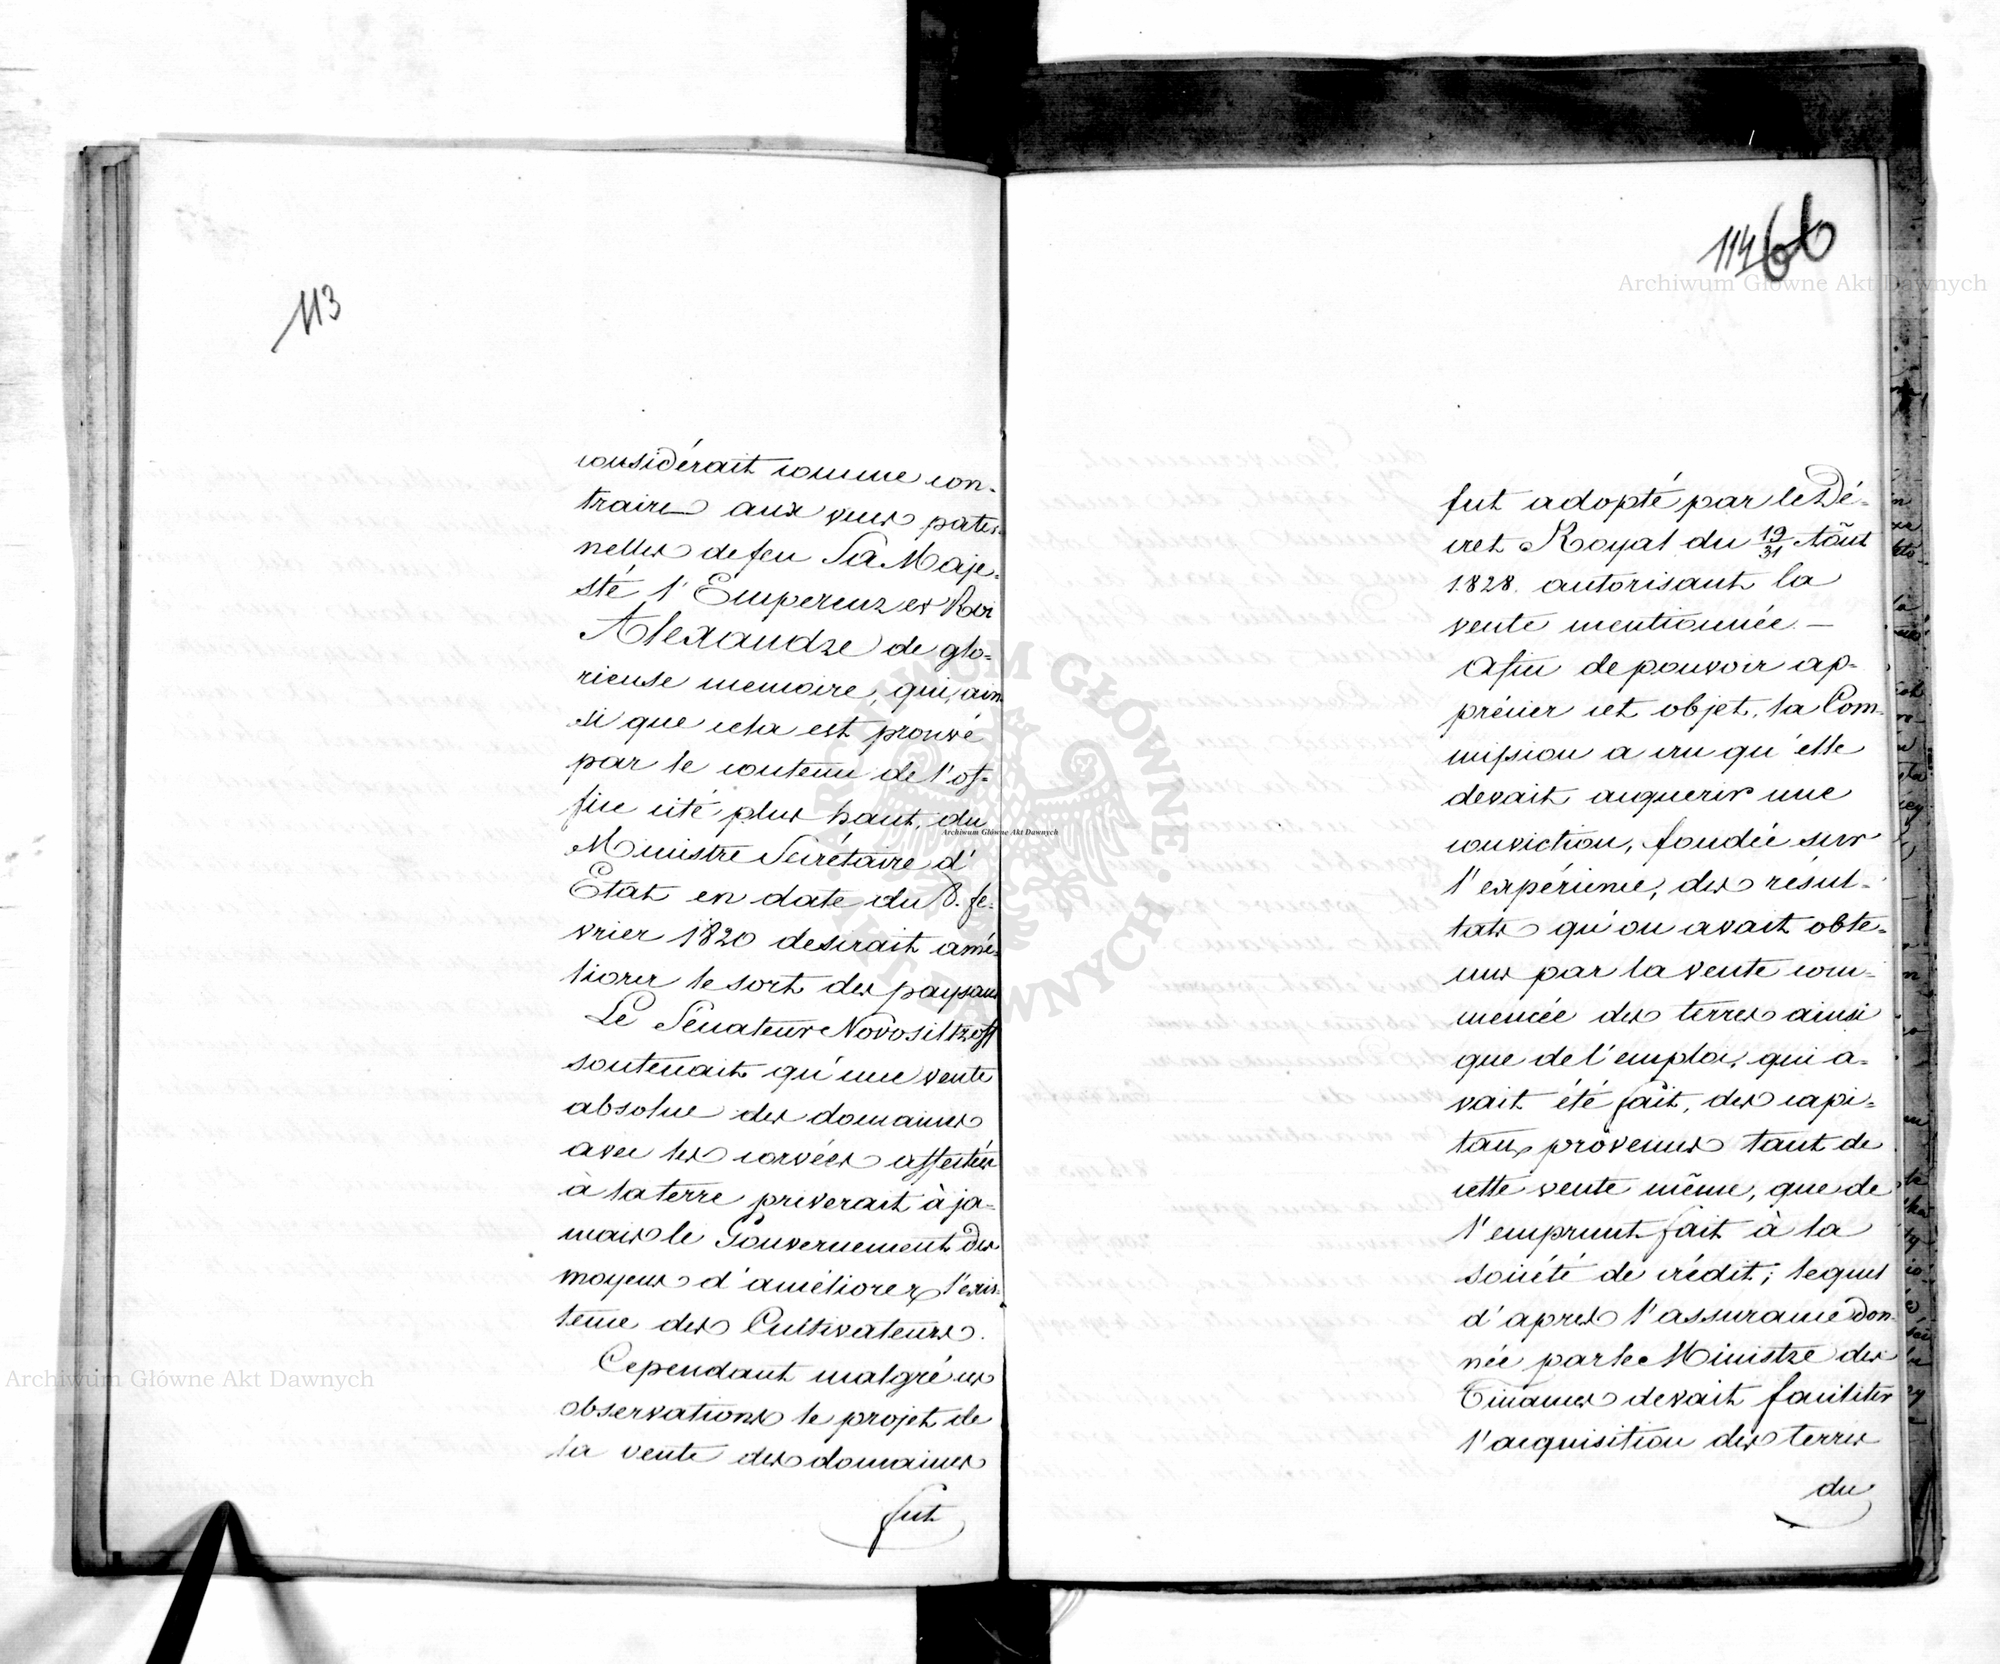 113
considérait comme con-
traire aux vues pater-
nelles de feu Sa Maje-
sté l'Empereur et Roi
Alexandre de glo-
rieuse memoire, qui, ain
si que cela est prouvé
par le contenu de l'of-
fice cité plus haut, du
Ministre Secrétaire d'
Etat en date du 8. fe-
vrier 1820 desirait amé-
liorer le sort des paysans
Le Senateur Novosiltzoff
soutenait qu'une vente
absolue des domaines
avec les corvées affectées
à la terre priverait à ja-
mais le Gouvernement des
moyens d'améliorer l'exis-
tence des Cultivateurs.
Cependant malgré ces
observations le projet de
la vente des domaines
fut
114 66
fut adopté par le Dé-
cret Royal du 19/31 Aôut
1828. autorisant la
vente mentionnée. —
Afin de pouvoir ap-
précier cet objet, la Com-
mission a cru qu'elle
devait acquerir une
conviction, fondée sur
l'expérience, des résul-
tats qu'on avait obte-
nus par la vente com-
mencée des terres ainsi
que de l'emploi, qui a-
vait été fait, des capi-
taux provenus tant de
cette vente même, que de
l'emprunt fait à la
société de crédit; lequel
d'après l'assurance don-
née par le Ministre des
Finances devait faciliter
l'acquisition des terres
du
Archiwum Główne Akt Dawnych
Archiwum Główne Akt Dawnych
Archiwum Główne Akt Dawnych
ARCHIWUM GŁÓWNE AKT DAWNYCH